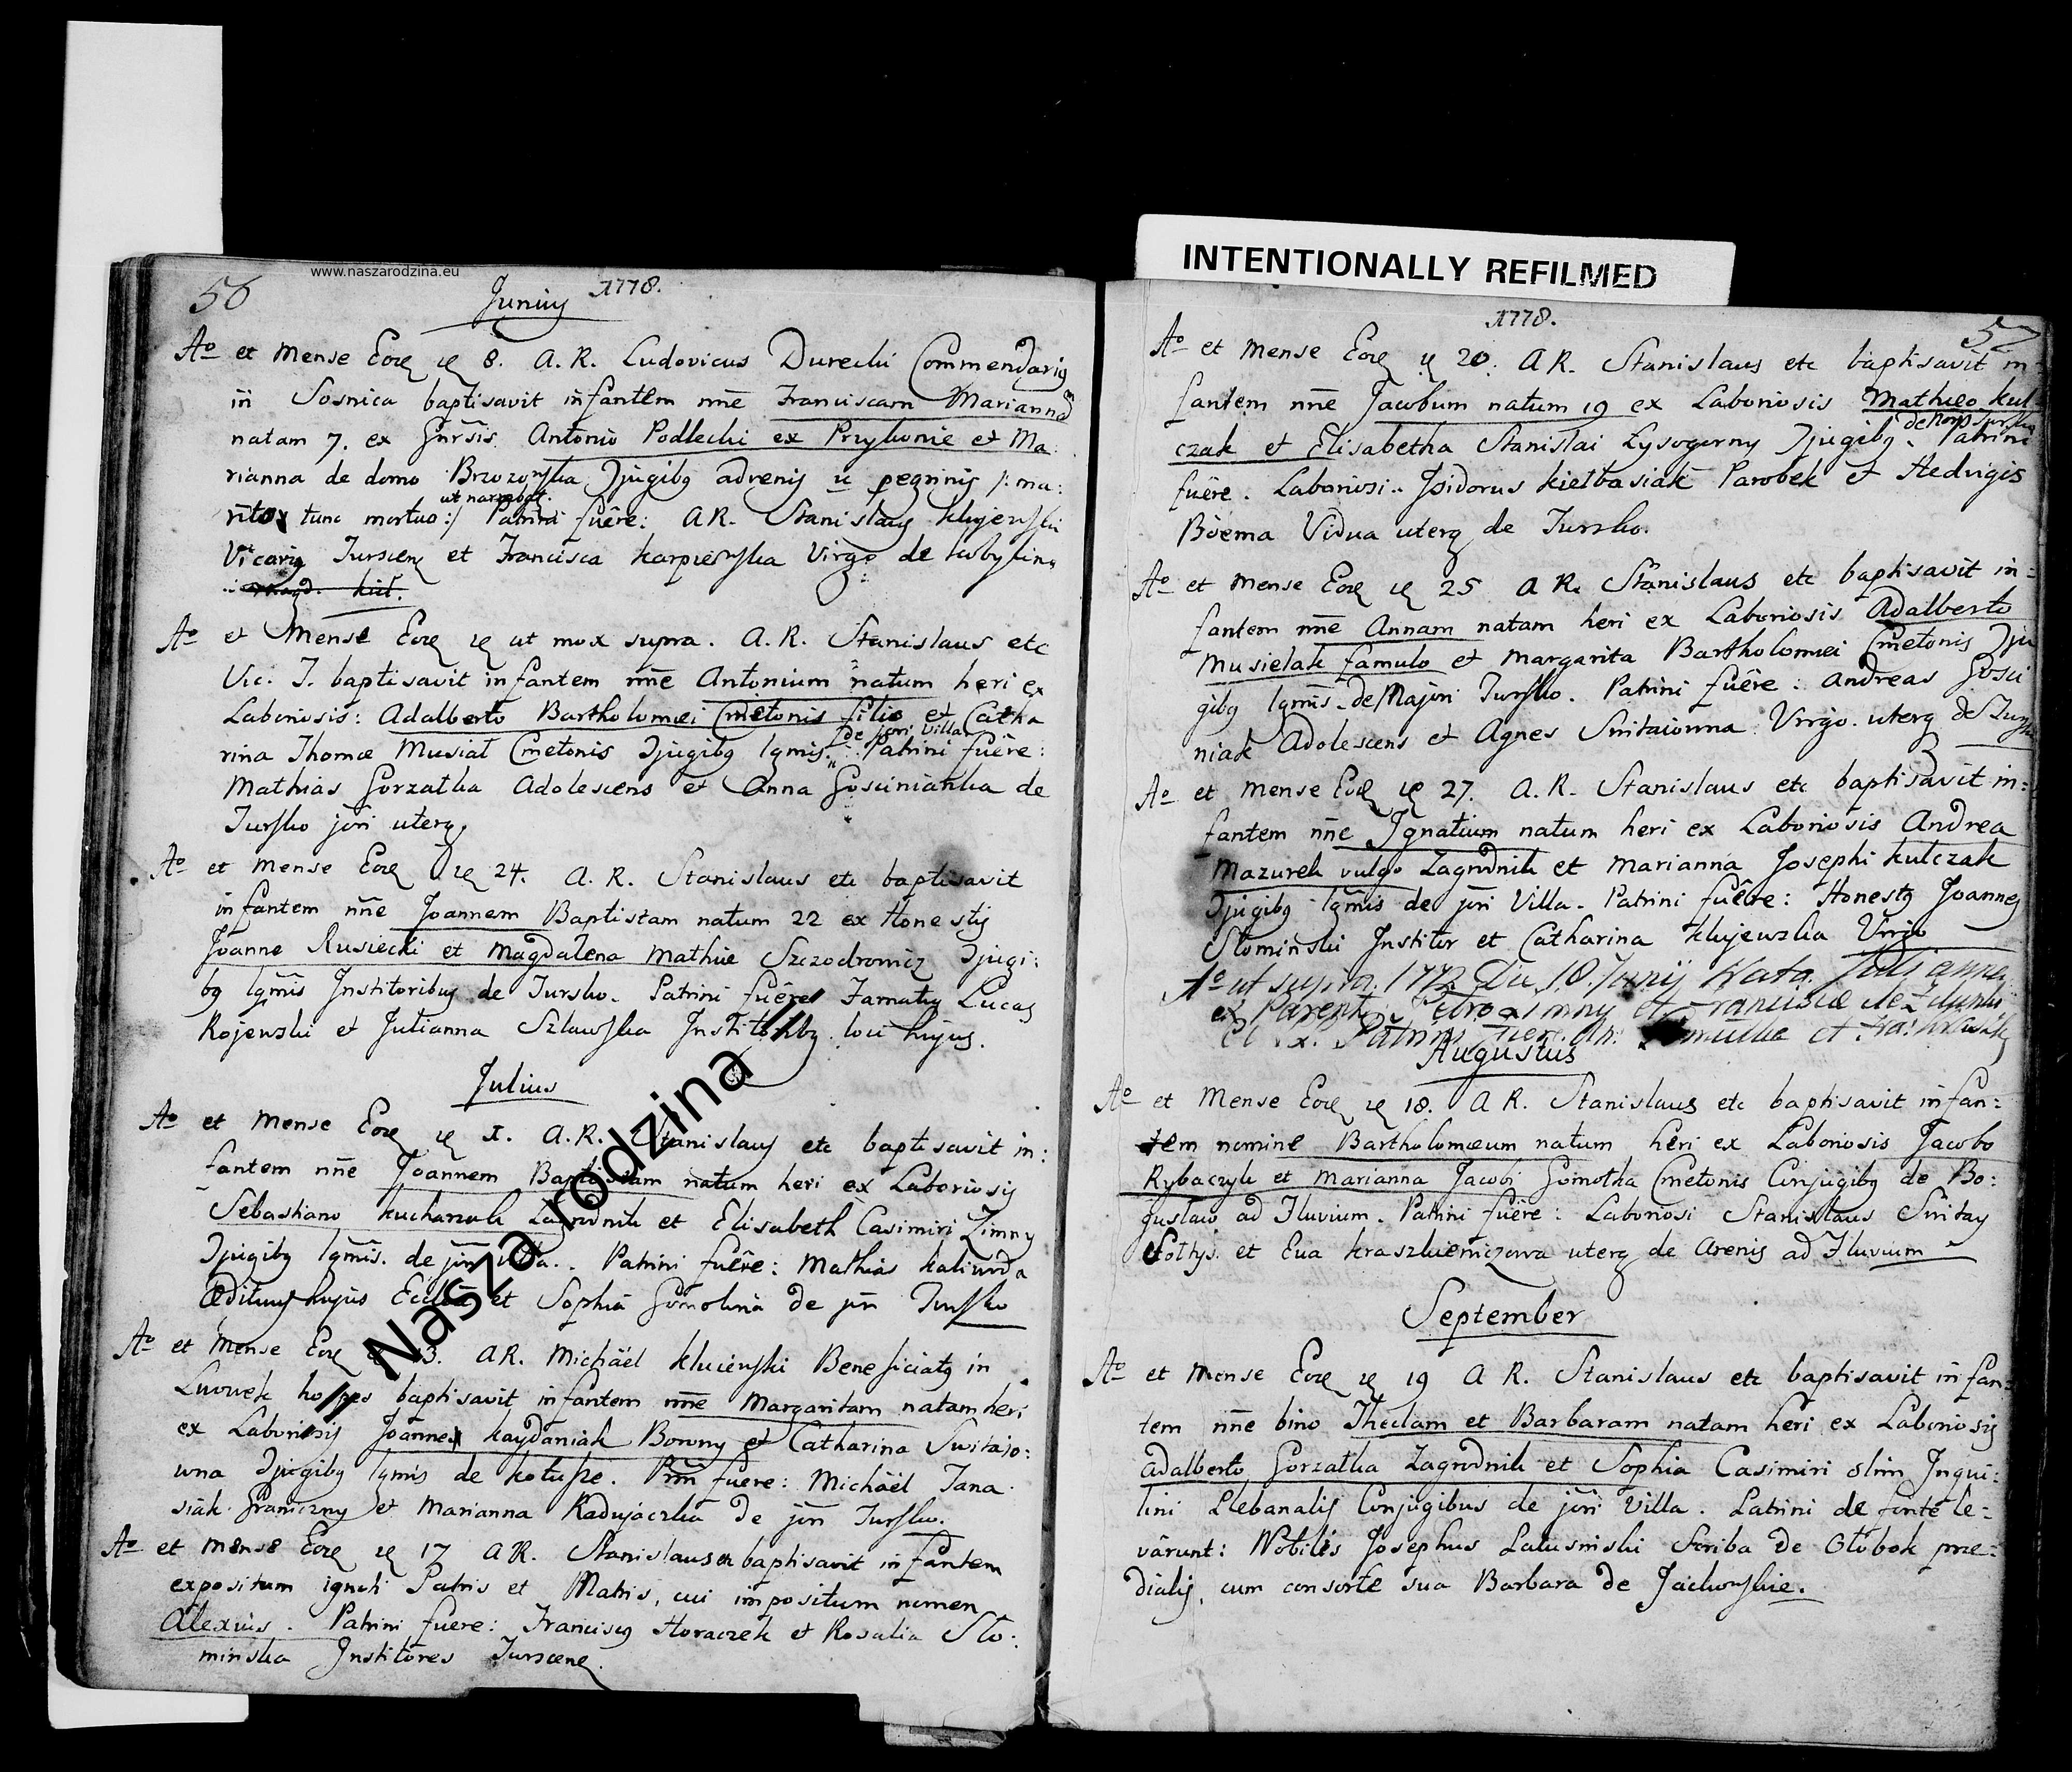 www.naszarodzina.eu
INTENTIONALLY REFILMED
56
Junius 1778.
Aº et Mense Eod 8. A. R. Ludovicus Durecki Commendarig
in Sosnica baptisavit infantem nne Franciscam Mariannam
natam 7. ex Gnrsis Antonio Podlecki ex Przybonie et Ma:
rianna de domo Brzozowska Jjugibg advenis
ut narrabat.
tunc mortuo:/ Patrini fuêre: AR. Stanislaus
Vicarig Turscen et Francisca Virgo de
Aº et Mense Eod ut mox supra. A. R. Stanislaus etc
Vic. T. baptisavit infantem nne Antonium natum heri ex
Laboriosis: Adalberto Bartholomei Cmetonis filio et Catha
de jŏri villa
rina Thomæ Musiał Cmetonis Jjugibg lgmis. Patrini fuêre:
Mathias Gorzałka Adolescens et Anna Gosciniańka de
Tursko jŏri uterq
Aº et Mense Eod 24. A. R. Stanislaus etc baptisavit
infantem nne Joannem Baptistam natum 22 ex Honestis
Joanne Rusiecki et Magdalena Mathiæ Szczodrowicz Jjugi:
bg lgmis Institoribus de Tursko. Patrini fuêre Famatus Lucas
Kojewski et Julianna Szlawska Institoribg loci hujus.
Julius
Aº et Mense Eod 1. A. R. Stanislaus etc baptisavit in:
fantem nne Joannem Baptistam natum heri ex Laboriosis
Sebastiano Kucharzak Zagrodnik et Elisabeth Casimiri Zimny
Jjugibg lgmis. de jŏri villa. Patrini fuêre: Mathias
Æditus hujus Eccliæ et Sophia Gomolina de jŏri Tursko
Aº et Mense Eod 13. AR. Michäel Beneficiatg in
Lwowek hospes baptisavit infantem nne Margaritam natam heri
ex Laboriosis Joanne Kaydaniak Borowy et Catharina Switajo:
wna Jjugibg lgmis de Patrini fuere: Michäel Jana
siak Graniczny et Marianna Radujaczka de jŏri Tursko.
Aº et Mense Eod 17 AR. Stanislaus etc baptisavit infantem
expositum ignoti Patris et Matris, cui impositum nomen
Alexius. Patrini fuere: Franciscg Horaczek et Rosalia Sło:
minska Institores Turscenẹ.
Nasza rodzina
1778.
57
Aº et Mense Eod 20. A R. Stanislaus etc baptisavit in
fantem nne Jacobum natum 19 ex Laboriosis Mathæo Kul
czak et Elisabetha Stanislai Łysogorny Jjugibg. Patrini
fuêre. Laboriosi. Isidorus Kiełbasiak Parobek et Hedvigis
Böema Vidua uterq de Tursko.
Aº et Mense Eod 25 A R. Stanislaus etc baptisavit in=
fantem nne Annam natam heri ex Laboriosis Adalberto
Musielak famulo et Margarita Bartholomæi Cmetonis Jju
gibg lgmis. de Majori Tursko. Patrini fuêre: Andreas Gosci
niak Adolescens et Agnes Switaiowna Virgo. uterq de Tursko
Aº et Mense Eod 27. A. R. Stanislaus etc baptisavit in=
fantem nne Ignatium natum heri ex Laboriosis Andrea
Mazurek vulgo Zagrodnik et Marianna Josephi Kulczak
Jjugibg lgmis de jŏri Villa. Patrini fuêre: Honestg Joannes
Słominski Institor et Catharina Klujewska Virgo
Aº ut supra. Die 10. Junij Nata. Julianna
ex Parent. Petro Zimny et Francisca de
Patrini
Augustus
Aº et Mense Eod 18. A R. Stanislaus etc baptisavit infan=
tem nomine Bartholomæum natum heri ex Laboriosis Jacobo
Rybaczyk et Marianna Jacobi Gomołka Cmetonis Conjugibg de Bo:
gusław ad Fluvium. Patrini fuêre: Laboriosi Stanislaus Switay
Sołtys et Eva Kraszkiewiczowa uterq de Arenis ad Fluvium
September
Aº et Mense Eod 19 A R. Stanislaus etc baptisavit infan=
tem nne bino Theclam et Barbaram natam heri ex Laboriosis
Adalberto Gorzałka Zagrodnik et Sophia Casimiri olim Inqui:
lini Plebanalis Conjugibus de jŏri Villa. Patrini de fonte le=
vârunt: Nobilis Josephus Łakusinski Scriba de Ołobok præ:
dialis, cum consorte sua Barbara de Jackowskie.